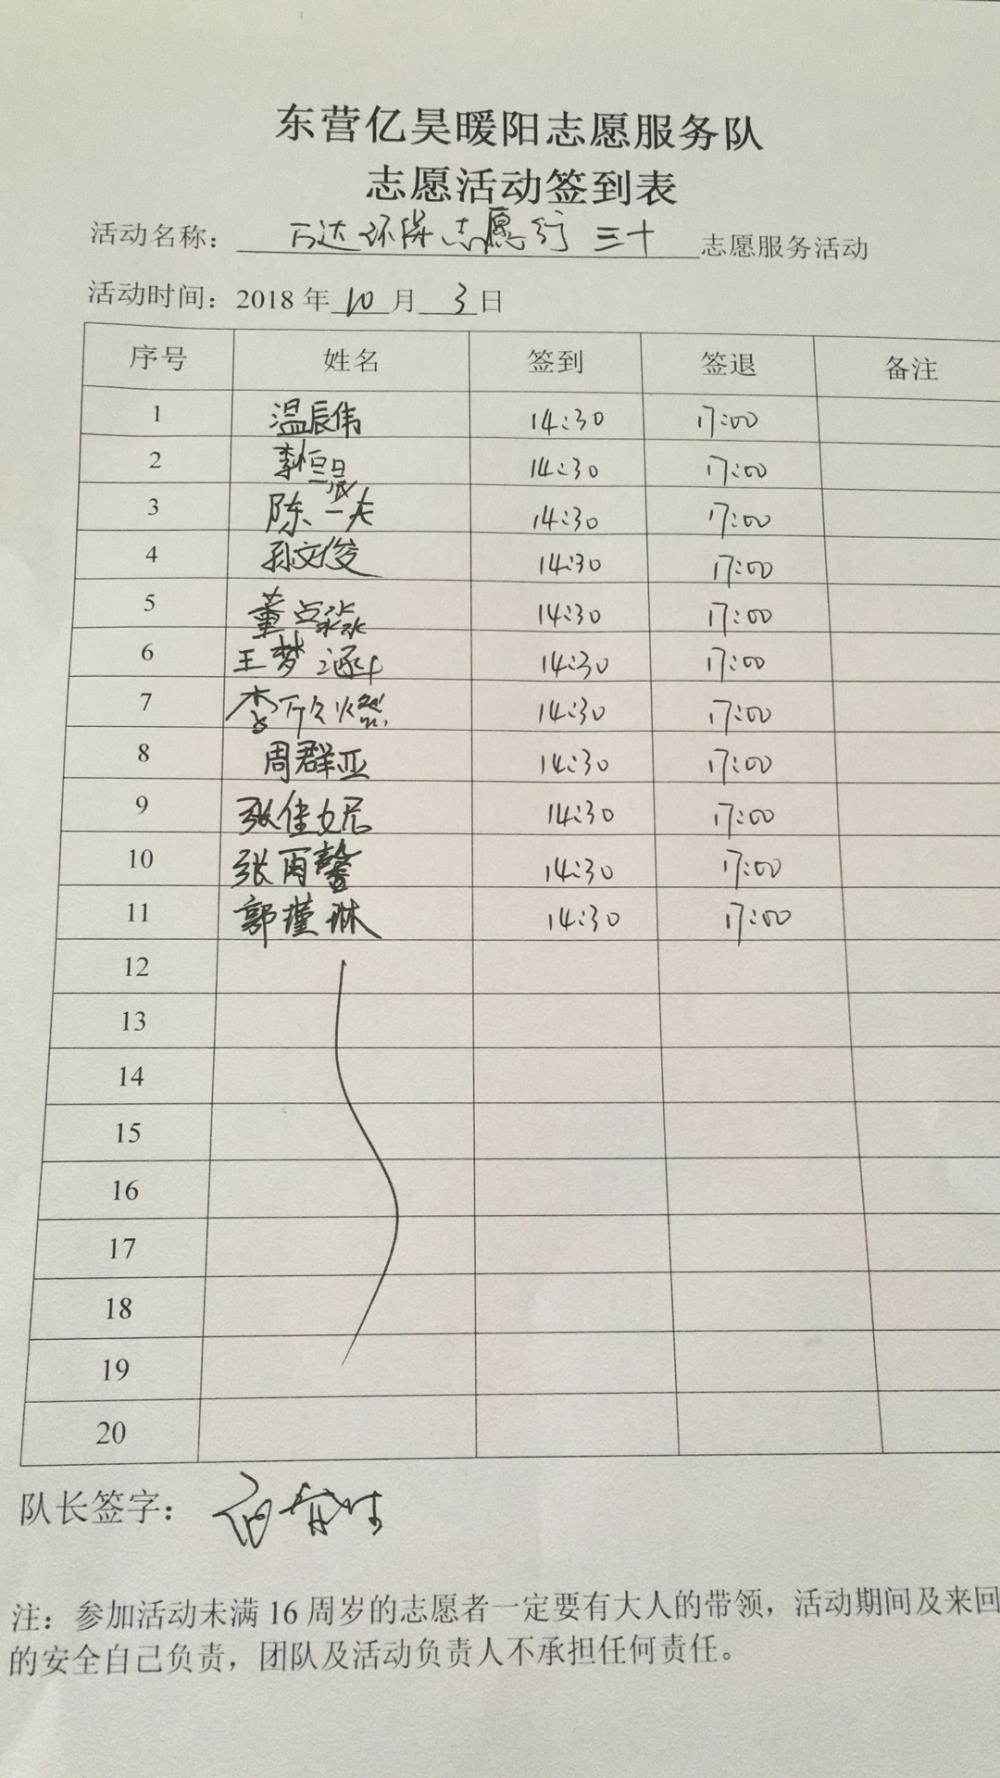 东营亿昊暖阳志愿服务队
志愿活动签到表
活动名称：万达环保志愿行 三十 志愿服务活动
活动时间：2018年10月3日
序号 姓名 签到 签退 备注
1 温辰伟 14:30 17:00
2 李恒晟 14:30 17:00
3 陈一夫 14:30 17:00
4 孙文俊 14:30 17:00
5 董点淼 14:30 17:00
6 王梦涵 14:30 17:00
7 李欣燃 14:30 17:00
8 周群亚 14:30 17:00
9 张佳妮 14:30 17:00
10 张雨馨 14:30 17:00
11 郭瑾琳 14:30 17:00
12
13
14
15
16
17
18
19
20
队长签字：
注：参加活动未满16周岁的志愿者一定要有大人的带领，活动期间及来回
的安全自己负责，团队及活动负责人不承担任何责任。